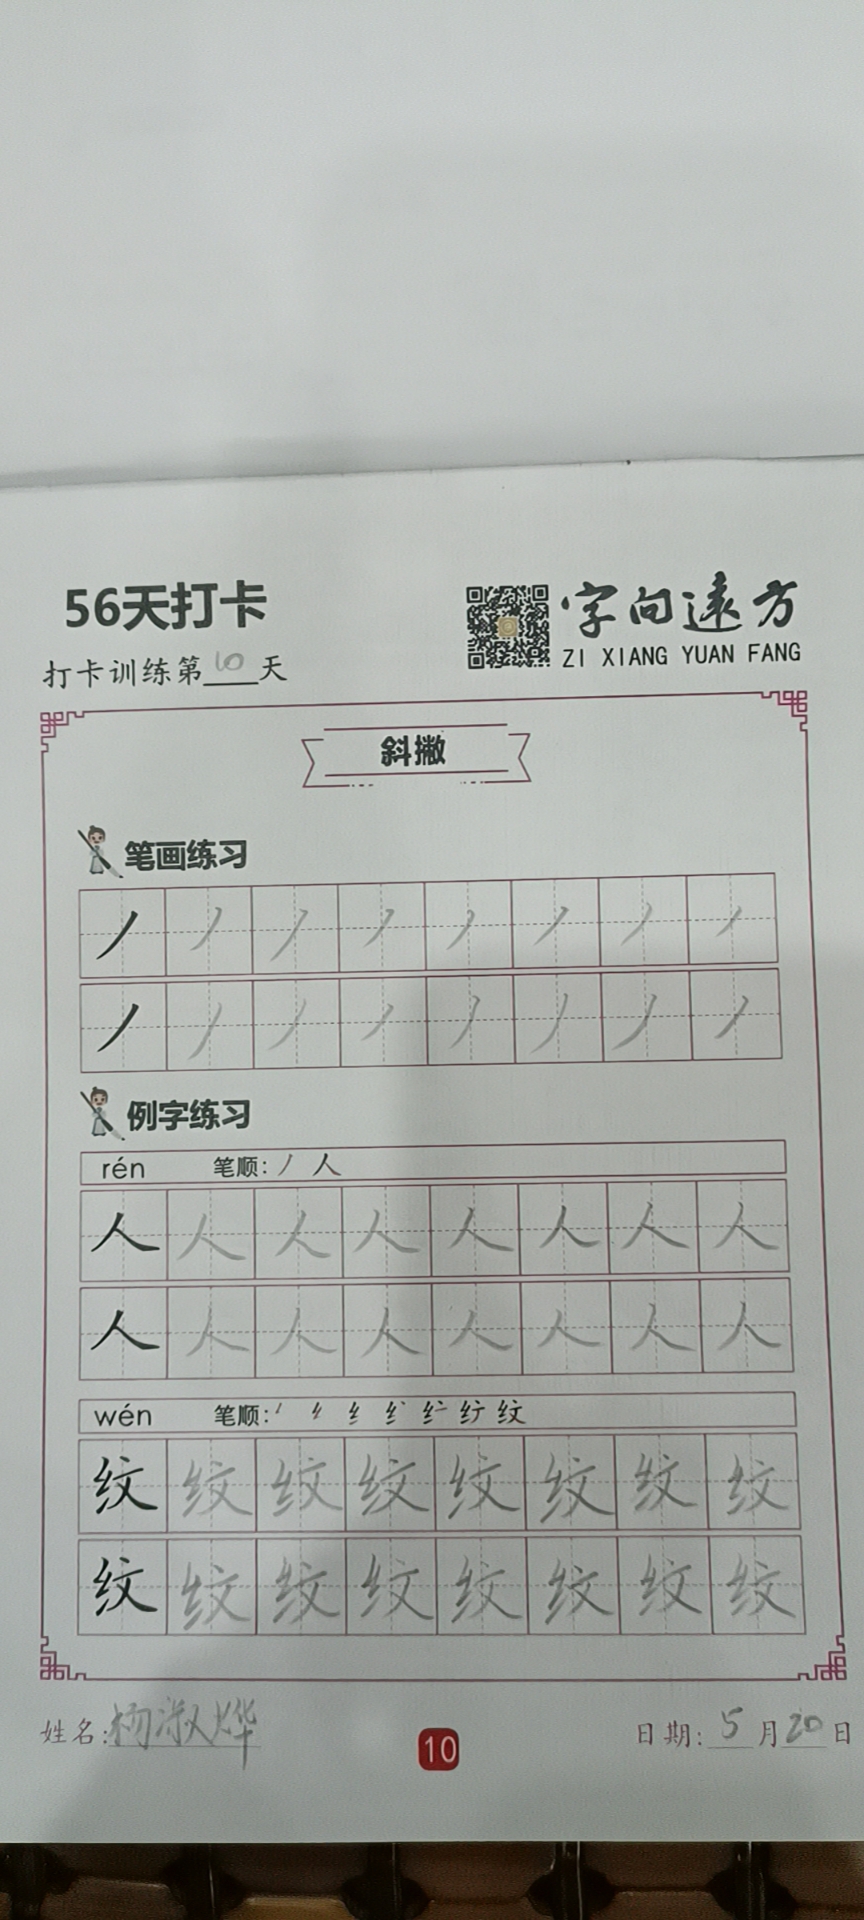 56天打卡
字向远方
ZI XIANG YUAN FANG
打卡训练第10天
斜撇
笔画练习
丿 丿 丿 丿 丿 丿 丿 丿
丿 丿 丿 丿 丿 丿 丿 丿
例字练习
rén 笔顺: 丿 人
人 人 人 人 人 人 人 人
人 人 人 人 人 人 人 人
wén 笔顺: 纹
纹 纹 纹 纹 纹 纹 纹 纹
纹 纹 纹 纹 纹 纹 纹 纹
姓名: 杨淑烨
10
日期: 5月20日